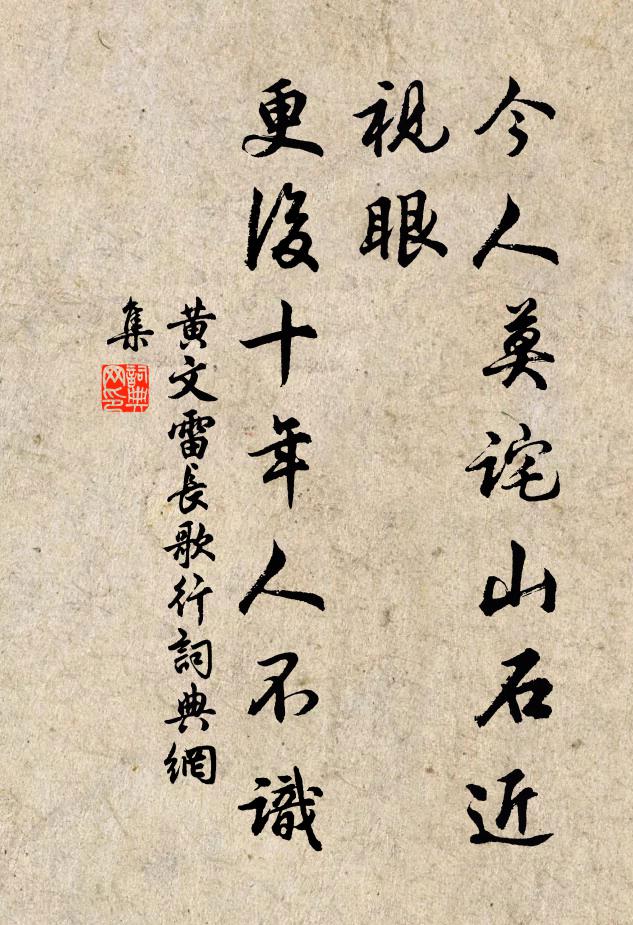 今人莫詫山石近
視眼
更後十年人不識
黃文雷長歌行詞典網
集
詞典
网印